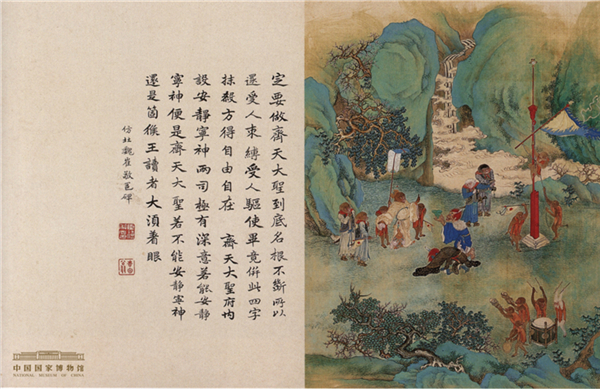 定要做齊天大聖到底名根不斷所以
還受人束縛受人驅使畢竟併此四字
抹殺方得自由自在 齊天大聖府內
設安靜寧神兩司極有深意若能安靜
寧神便是齊天大聖若不能安靜寧神
還是箇猴王讀者大須着眼
仿北魏崔敬邕碑
中国国家博物馆
NATIONAL MUSEUM OF CHINA